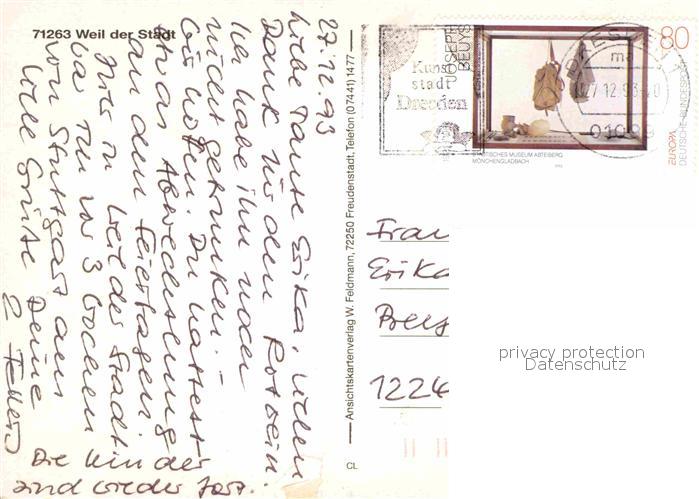 71263 Weil der Stadt
27.12.93
Liebe Tante Erika, vielen
Dank für den Rotwein
Ich habe ihn noch
nicht getrunken. –
Wir hoffen, Du hattest
etwas Abwechslung
an den Feiertagen.
in Weil der Stadt
war vor 3 Wochen
von Stuttgart aus
Liebe Grüße Deine
2
Die Kinder
sind wieder fort.
Ansichtskartenverlag W. Feldmann, 72250 Freudenstadt, Telefon (07441) 1477
CL
Kunst
stadt
Dresden
JOSEPH
BEUYS
80
DRESDEN
27.12.93
01099
STÄDTISCHES MUSEUM ABTEIBERG
MÖNCHENGLADBACH
EUROPA
DEUTSCHE BUNDESPOST
Frau
Erika
1224
privacy protection
Datenschutz